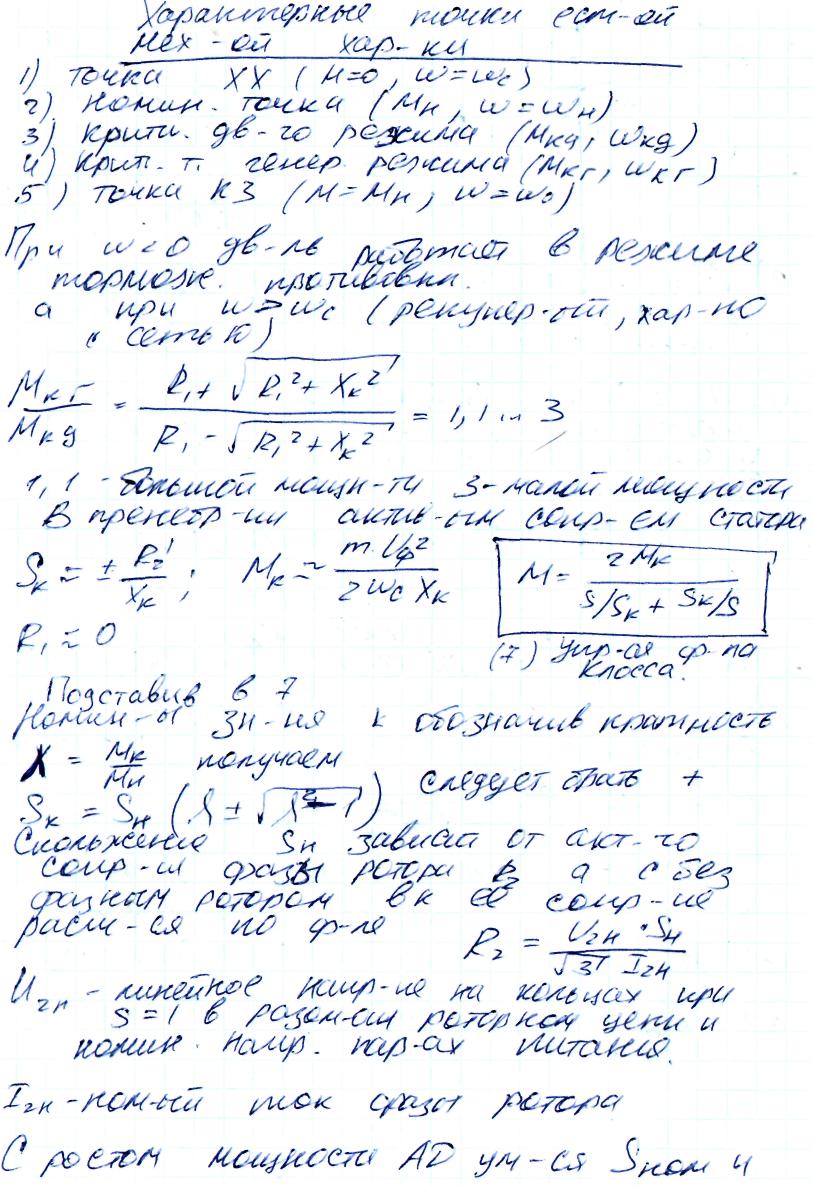 Характерные точки ест-ой
мех-ой хар-ки
1) точка XX (M=0, ω=ωс)
2) номин. точка (Mн, ω=ωн)
3) крити. дв-го режима (Mкд, ωкд)
4) крит. т. генер. режима (Mкг, ωкг)
5) точка КЗ (M=Mн, ω=ω0)
При ω<0 дв-ль работает в режиме
торможе. противовкл.
а при ω>ωс (рекупер-от, хар-но
с сетью)
Mкг/Mкд = (R₁+√(R₁²+Xк²))/(R₁-√(R₁²+Xк²)) = 1,1 и 3
1,1 - большой мощн-ти 3-малой мощности
В пренебр-ии актив-ым сопр-ем статора
Sк ≈ ± R₂'/Xк; Mк ≈ m Uф²/(2ωс Xк) M = 2Mк/(S/Sк + Sк/S)
R₁ ≈ 0
(7) упр-ая ф-ла
Класса.
Подставив в 7
Номин-ы зн-ия к обозначив кратность
λ = Mк/Mн получаем
следует брать +
Sк = Sн (λ ± √(λ²-1))
Скольжение Sн зависит от акт-го
сопр-ия фазы ротора R₂ а с без
фазным ротором вк её сопр-ие
расч-ся по ф-ле
R₂ = U₂н · Sн/(√3 I₂н)
U₂н - линейное напр-ие на кольцах при
S=1 в разом-ой роторной цепи и
номин. напр. пар-ах питания.
I₂н - ном-ый ток фазы ротора
С ростом мощности АД ум-ся Sном и